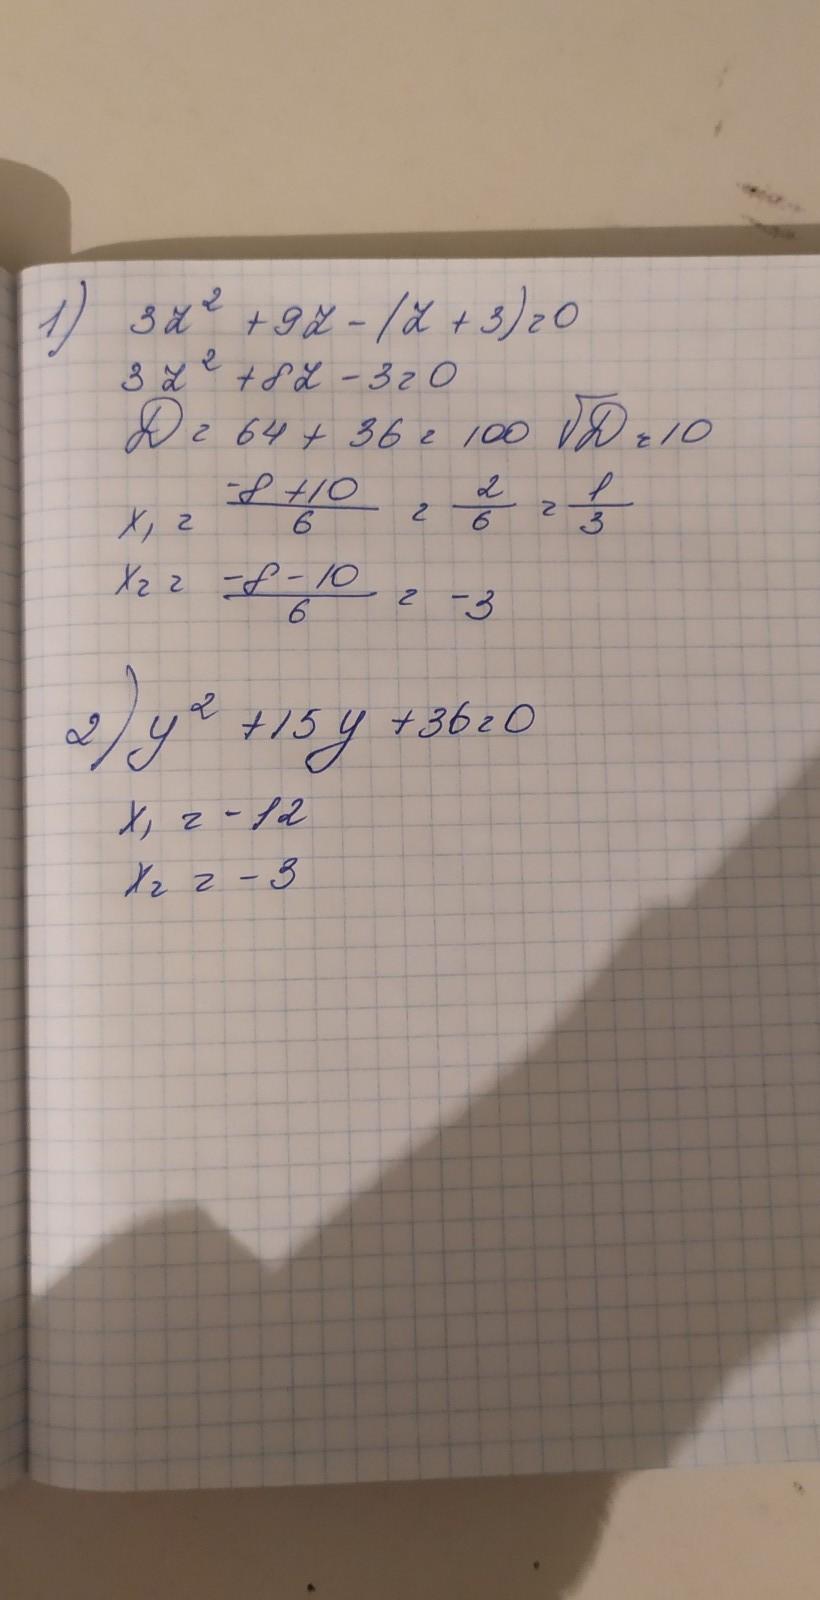 1) 3z² + 9z - (z + 3) = 0
3z² + 8z - 3 = 0
D = 64 + 36 = 100 √D = 10
x₁ = (-8 + 10)/6 = 2/6 = 1/3
x₂ = (-8 - 10)/6 = -3
2) y² + 15y + 36 = 0
x₁ = -12
x₂ = -3